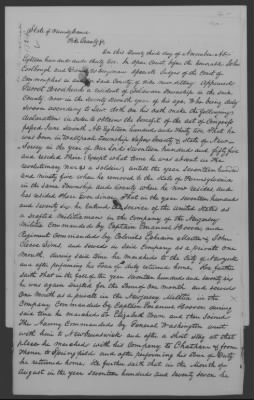 State of Pennsylvania
Pike County Ss
On this twenty third day of November AD
Eighteen hundred and thirty two. In Open Court before the honorable John
Coolbaugh and Daniel W Dingman Associate Judges of the Court of
Commonpleas in and said County of now sitting Appeared
Brodrick a resident of Township in the said
County now in the seventh year of his age Who being duly
sworn according to law doth on his oath make the following
declaration in order to obtain the benefit of the act of Congress
passed June seventh AD Eighteen hundred and thirty two That he
was born in Township Essex County & State of New
Jersey in the year of our Lord Seventeen hundred and fifty five
and resided there (except what time he was absent in the
revolutionary war as a soldier) until the year Seventeen hundred
and ninety five when he removed to the state of Pennsylvania
in the same Township and County where he now resides and
has resided there ever since. That in the year seventeen hundred
and seventy six he entered the service of the United States as
a drafted militiaman in the Company of the New Jersey
militia Commanded by Captain and
Regiment Commanded by Colonel John
and served in said Company as a private one
Month during said time he marched to the City of New York
and after performing his tour of duty returned home. He further
saith that in the of the year seventeen hundred and seventy six
he was again drafted for the of one month and served
One Month as a private in the New Jersey Militia in the
Company Commanded by Captain during
said time he marched to Elizabeth Town and then joined
The Commanded by General Washington went
with him to New Brunswick and after a short stay at that
place he marched with his Company to Chatham & from
thence to Springfield and after performing his tour of Duty
he returned home. He further saith that in the Month of
August in the year seventeen hundred and seventy seven he